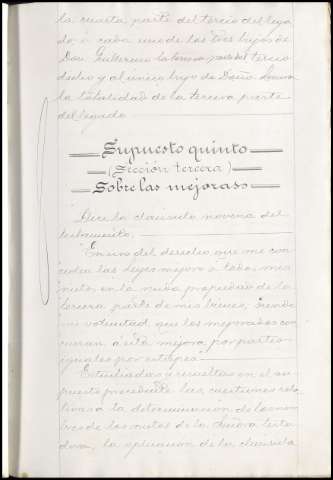 la cuarta parte del tercio del lega
do, a cada uno de los tres hijos de
Don Guillermo la tercera parte del tercio
dicho y al único hijo de Doña
la totalidad de la tercera parte
del legado
Supuesto quinto
(Sección tercera)
Sobre las mejoras
Dice la cláusula novena del
testamento.
"En uso del derecho que me con
ceden las leyes mejoro a todos mis
nietos en la nuda propiedad de la
tercera parte de mis bienes, siendo
mi voluntad que los mejorados con
curran a esta mejora por partes
iguales por estirpes"
Estudiadas y resueltas en el su
puesto precedente las cuestiones rela
tivas a la determinación de los nom
bres de los nietos de la Señora testa
dora, la aplicación de la cláusula